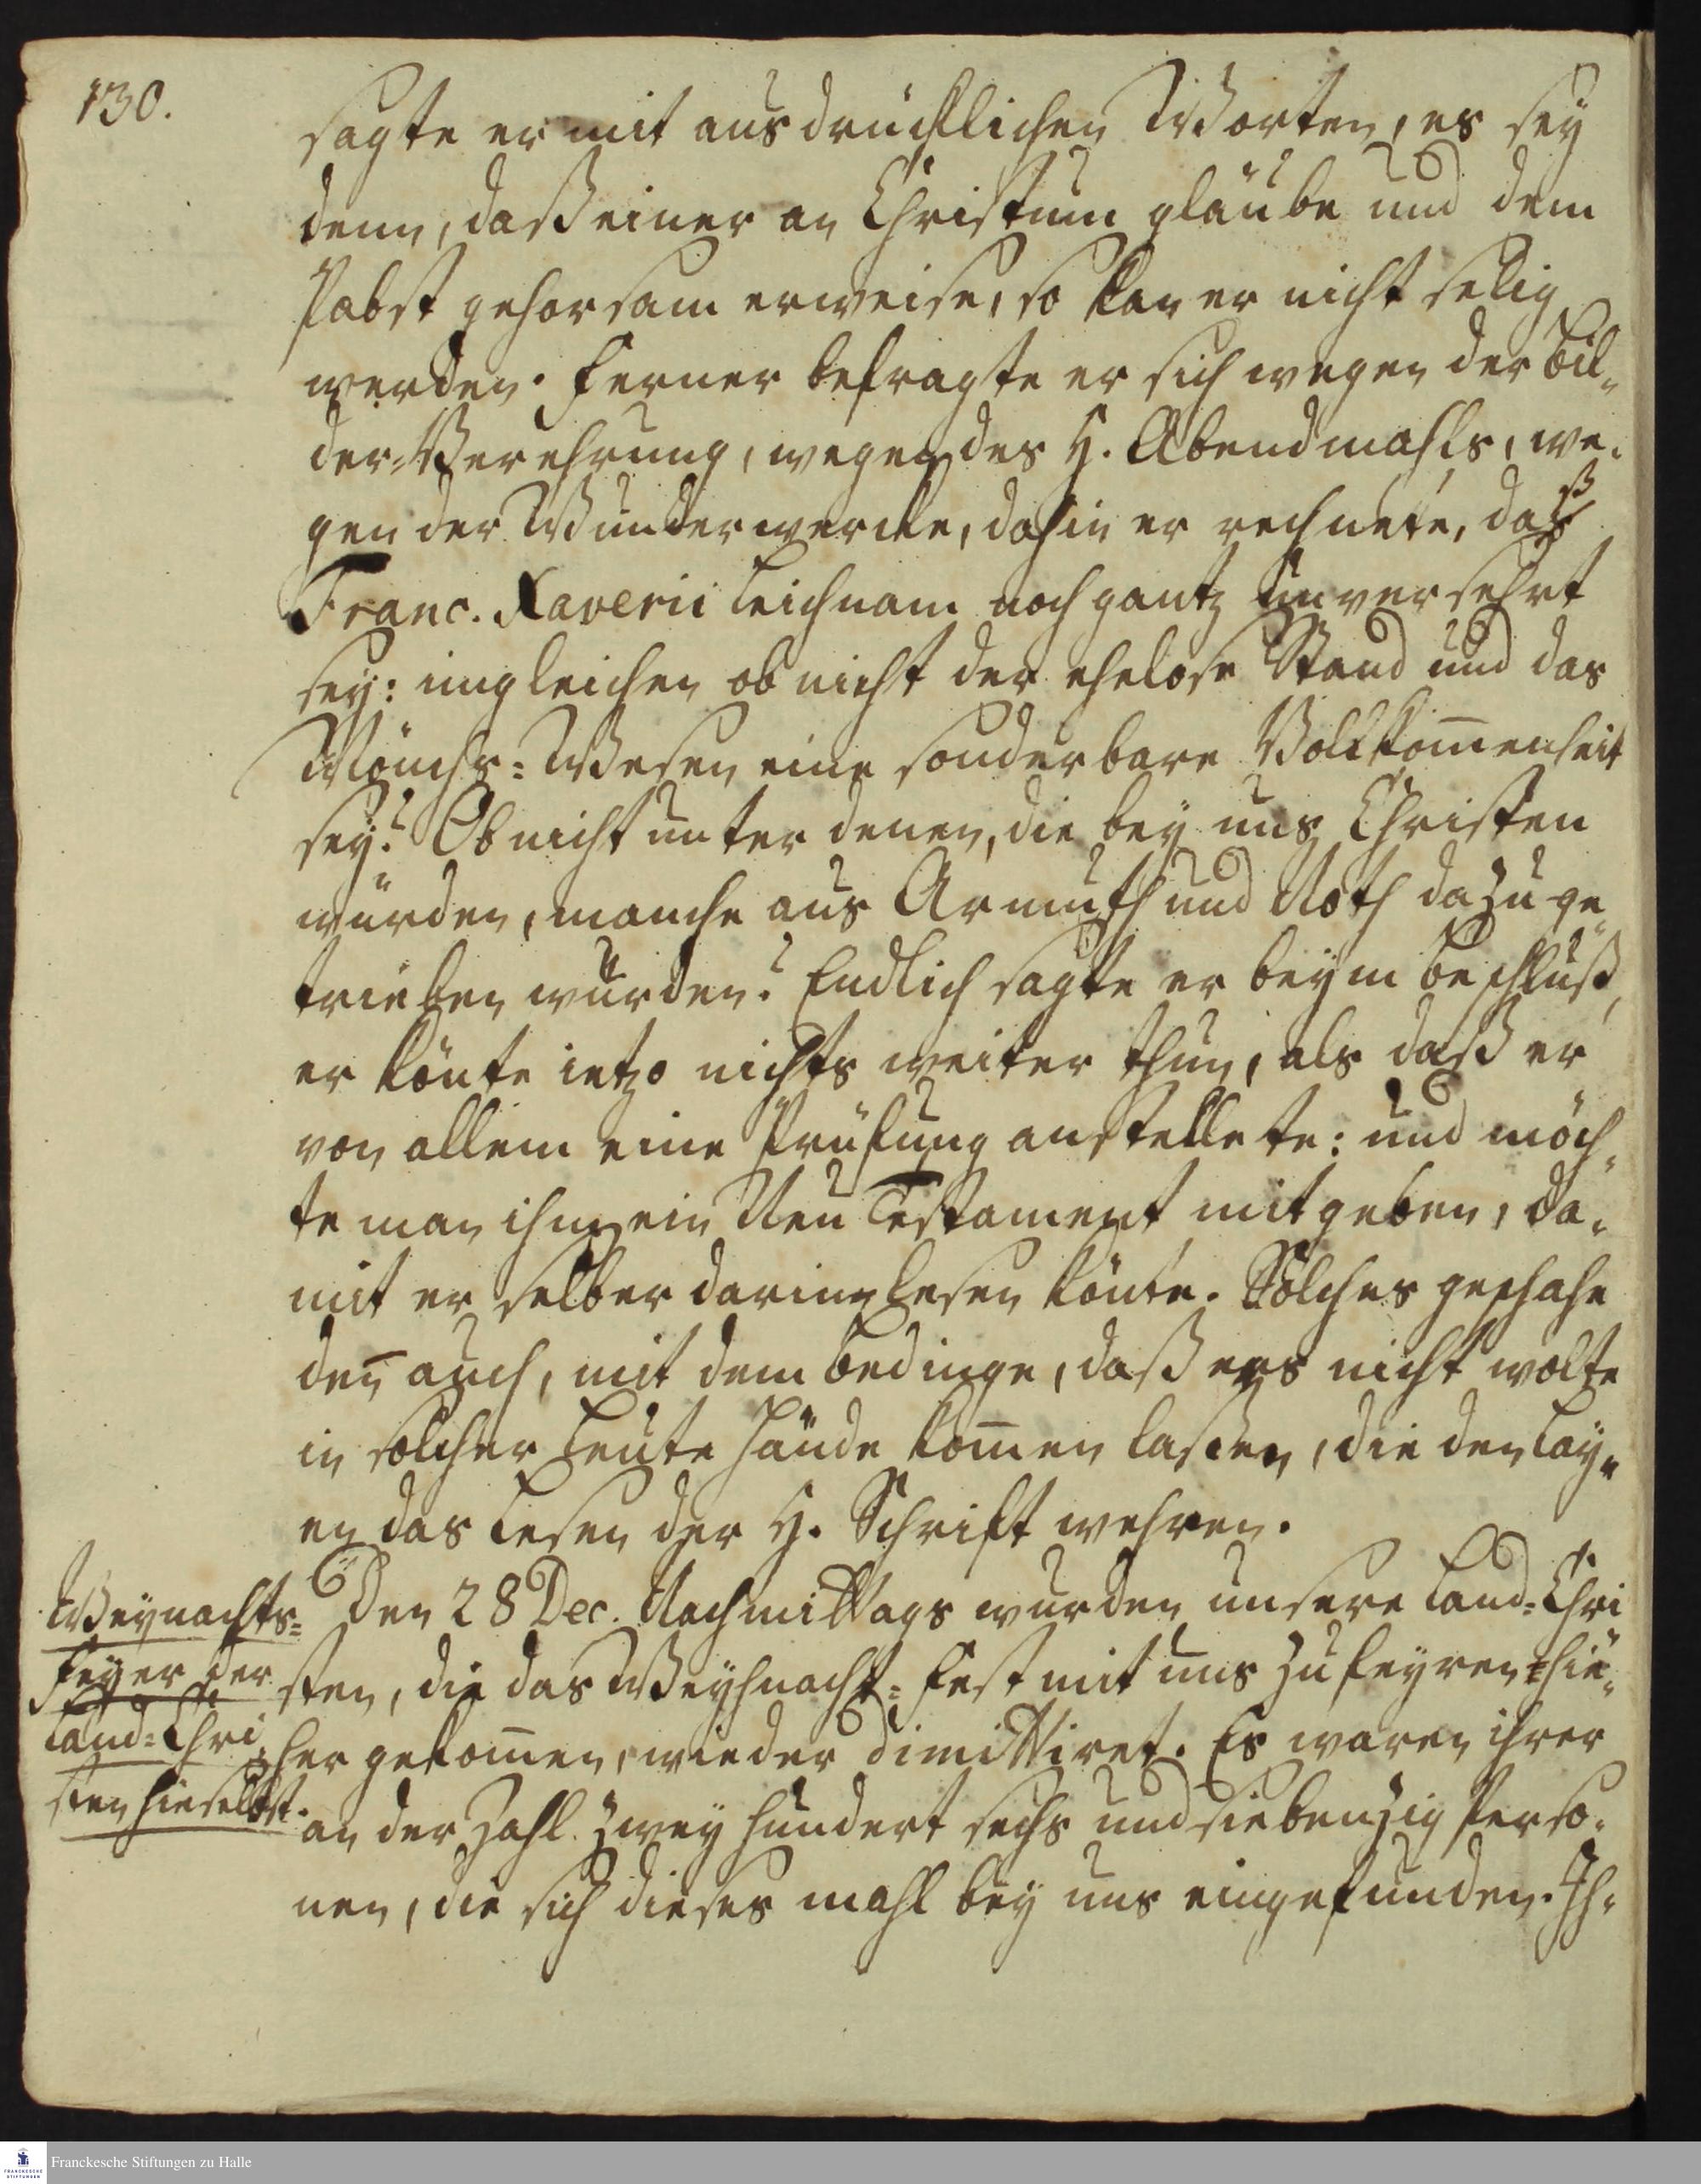 130.
sagte er mit ausdrücklichen Worten, es sey
denn, daß einer an Christum gläube und dem
Pabst gehorsam erweise, so kan er nicht selig
werden. Ferner befragte er sich wegen der Bil-
der-Verehrung, wegen des H. Abendmahls, we-
gen der Wunderwercke, dahin er rechnete, daß
Franc. Xaverii Leichnam noch gantz unversehrt
sey: ingleichen ob nicht der ehelose Stand und das
Mönchs-Wesen eine sonderbare Vollkom̅enheit
sey? Ob nicht unter denen, die bey uns Christen
würden, manche aus Armuth und Noth dazu ge-
trieben würden? Endlich sagte er beym Beschluß,
er könte ietzo nichts weiter thun, als daß er
von allem eine Prüfung anstellete: und möch-
te man ihm ein Neu Testament mitgeben, da-
mit er selber darinn lesen könte. Solches geschahe
den̅ auch, mit dem Bedinge, daß ers nicht wolte
in solcher Leute Hände kom̅en lassen, die den Lay-
en das Lesen der H. Schrift wehren.
Den 28 Dec. Nachmittags wurden unsere Land-Chri
sten, die das Weyhnacht-Fest mit uns zu feyren hie-
her gekom̅en, wieder dimittiret. Es waren ihrer
an der Zahl zwey hundert sechs und siebenzig Perso-
nen, die sich dieses mahl bey uns eingefunden. Ih-
Weynachts-
Feyer der
Land-Chri
sten hieselbst.
Franckesche Stiftungen zu Halle
FRANCKESCHE
STIFTUNGEN